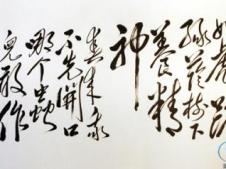 如虎踞
绿荫树下
养精
神
春来我
不先开口
哪个虫
儿敢作